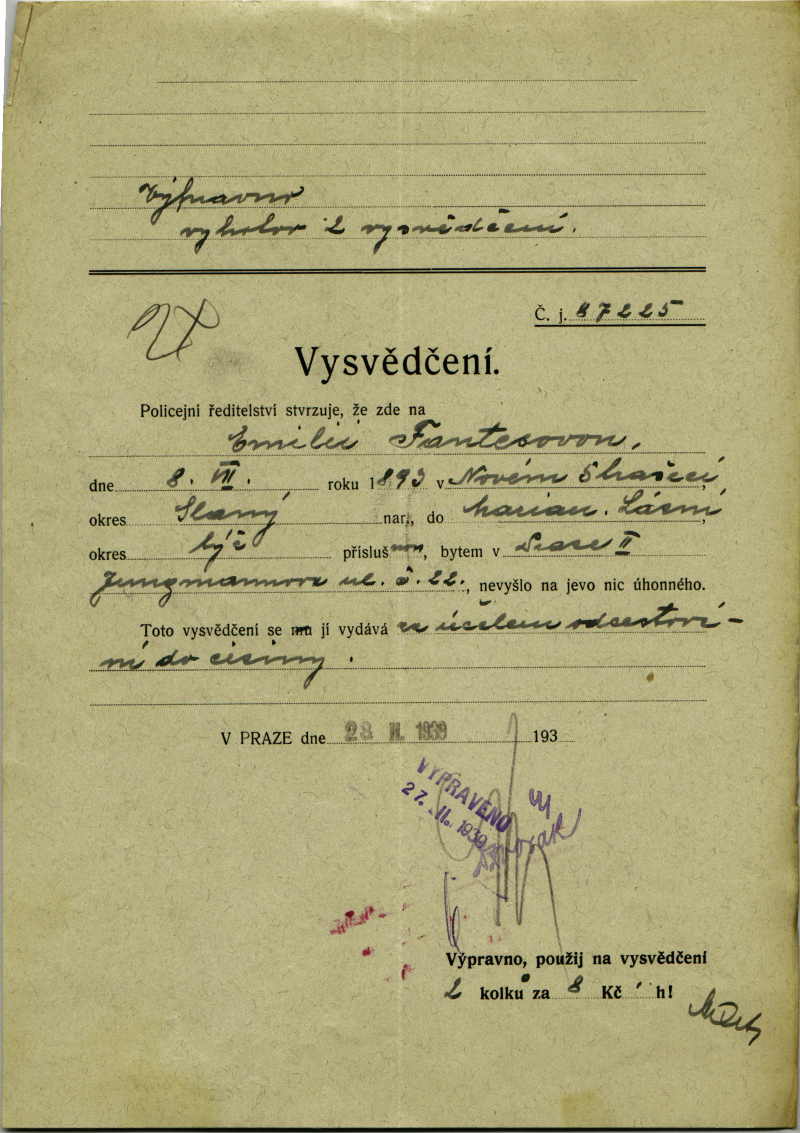 Výpravno
vyhotov 2 vysvědčení.
Č. j. 87225
Vysvědčení.
Policejní ředitelství stvrzuje, že zde na
Emilii Fantesovou,
dne 8. VII. roku 1893 v Novém Strašecí,
okres Slaný nar., do Marian. Lázní,
okres týž příslušnou, bytem v Praze II
Jungmannova ul. č. 22., nevyšlo na jevo nic úhonného.
Toto vysvědčení se mu jí vydává za účelem odcestová-
ní do ciziny.
V PRAZE dne 28 II. 1939 193
VYPRAVENO
27. II. 1939
Výpravno, použij na vysvědčení
2 kolků za 8 Kč h!